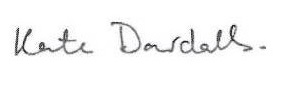 Kate Dowdalls.